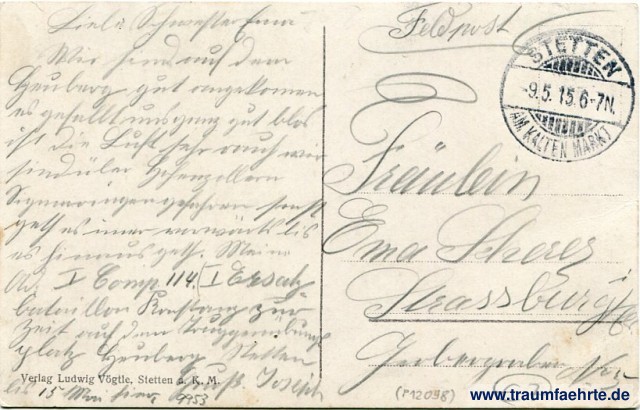 Liebe Schwester Ema
Wir sind auf dem
Heuberg gut angekomen
es gefällt uns ganz gut blos
ist die Luft sehr rauch wir
sind über Hohenzollern
Sigmaringen gefahren sonst
geht es imer vorwärts bis
es hinaus geht. Meine
Ad. I Comp. 114. I Ersatz
bataillon Konstanz zur
Zeit auf dem Truppenübungs
platz Heuberg Stetten
Gruß Joseph
bis 15 Mai hier
Verlag Ludwig Vögtle, Stetten a. K. M.
9953
Feldpost
STETTEN
-9.5.15.6-7N.
AM KALTEN MARKT
Fräulein
Ema Scherer
Strassburg
(P12098)
www.traumfaehrte.de